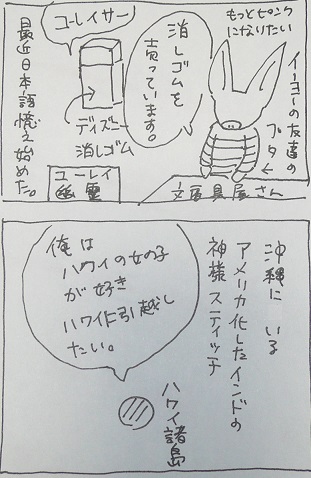 もっとピンク
になりたい
イーヨーの友達の
ブタ←
消しゴムを
売っています。
文房具屋さん
ユーレイサー
ディズニー
消しゴム
ユーレイ
幽霊
最近日本語憶え始めた。
沖縄に いる
アメリカ化したインドの
神様 スティッチ
ハワイ諸島
俺は
ハワイの女の子
が好き
ハワイに引越し
たい。